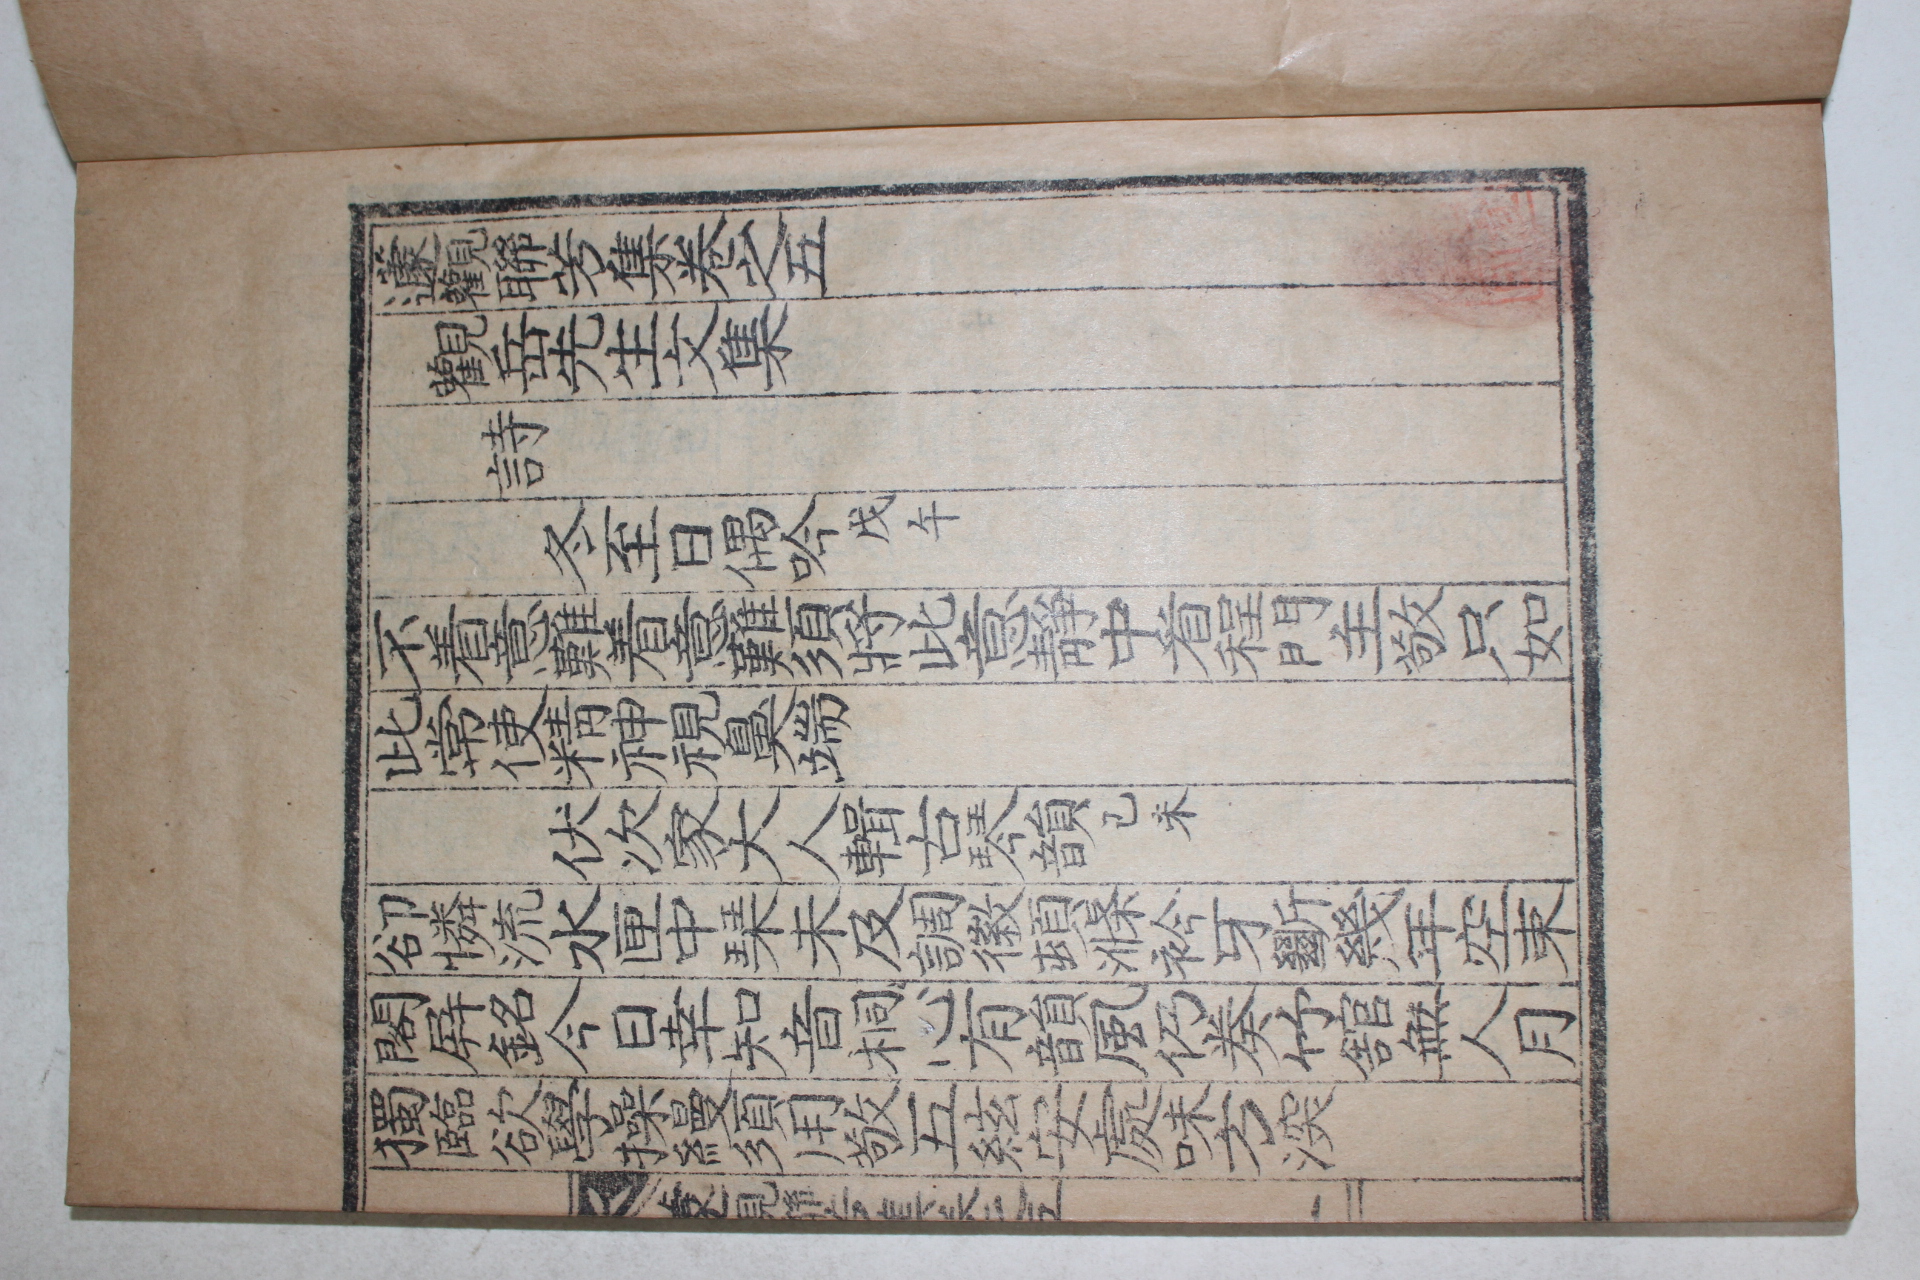 蘧觀聯芳集卷之五
觀岳先生文集
詩
冬至日偶吟戊午
不着意難着意難須將此意靜中看程門主敬只如
此常使精神視鼻端
伏次家大人輯古琴韻己未
卻憐流水匣中琹未及調徽頓滌衿牙斷幾年空束
閣屛銘今日幸知音桐心有韻風仍奏竹舘無人月
獨臨欲學操縵須用敬五絃安處味方深
蘧觀聯芳集卷之五 一